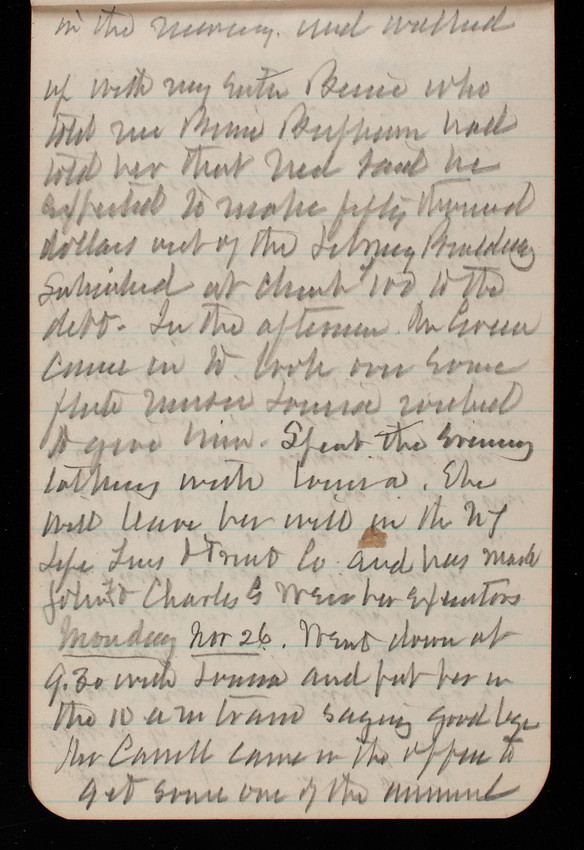 in the morning. and walked
up with my sister Bessie who
told me Buffum had
told her that Ned said he
expected to make fifty thousand
dollars out of the Library Building
at about 100 to the
debt. In the afternoon Mr
came in to look over some
flute music Louisa wished
to give him. Spent the evening
talking with Louisa. She
will leave her will in the NY
Life Ins & Trust Co and has made
John & Charles G Weir her executors
Monday Nov 26. Went down at
9.30 with Louisa and put her in
the 10 am train saying good bye
Mr Carroll came in the office to
get some one of the